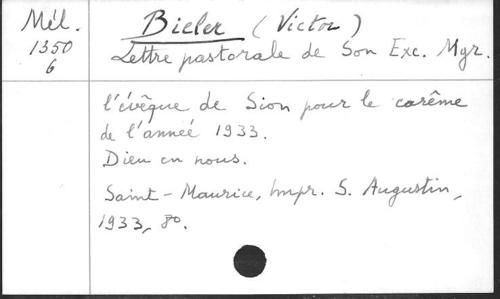 Mél.
1350
6
Bieler (Victor)
Lettre pastorale de Son Exc. Mgr.
l'évêque de Sion pour le carême
de l'année 1933.
Dieu en nous.
Saint-Maurice, Impr. S. Augustin,
1933, 8o.